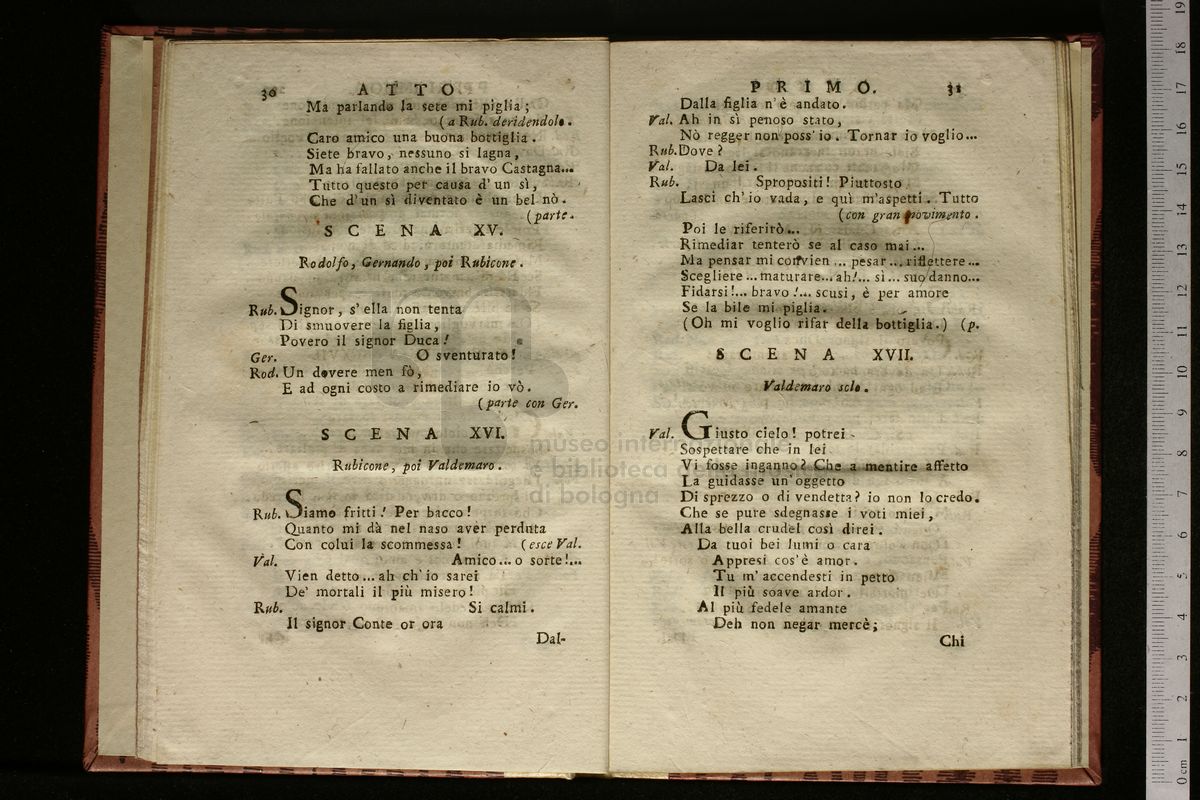 30 ATTO
Ma parlando la sete mi piglia;
(a Rub. deridendolo.
Caro amico una buona bottiglia.
Siete bravo, nessuno si lagna,
Ma ha fallato anche il bravo Castagna...
Tutto questo per causa d'un sì,
Che d'un sì diventato è un bel nò.
(parte.
SCENA XV.
Rodolfo, Gernando, poi Rubicone.
Rub. Signor, s'ella non tenta
Di smuovere la figlia,
Povero il signor Duca!
Ger. O sventurato!
Rod. Un dovere men fò,
E ad ogni costo a rimediare io vò.
(parte con Ger.
SCENA XVI.
Rubicone, poi Valdemaro.
Rub. Siamo fritti! Per bacco!
Quanto mi dà nel naso aver perduta
Con colui la scommessa! (esce Val.
Val. Amico... o sorte!...
Vien detto... ah ch'io sarei
De' mortali il più misero!
Rub. Si calmi.
Il signor Conte or ora
Dal-
PRIMO. 31
Dalla figlia n'è andato.
Val. Ah in sì penoso stato,
Nò regger non poss'io. Tornar io voglio...
Rub. Dove?
Val. Da lei.
Rub. Spropositi! Piuttosto
Lasci ch'io vada, e quì m'aspetti. Tutto
(con gran movimento.
Poi le riferirò...
Rimediar tenterò se al caso mai...
Ma pensar mi convien... pesar... riflettere...
Scegliere... maturare... ah!... sì... suo danno...
Fidarsi!... bravo!... scusi, è per amore
Se la bile mi piglia.
(Oh mi voglio rifar della bottiglia.) (p.
SCENA XVII.
Valdemaro solo.
Val. Giusto cielo! potrei
Sospettare che in lei
Vi fosse inganno? Che a mentire affetto
La guidasse un'oggetto
Di sprezzo o di vendetta? io non lo credo.
Che se pure sdegnasse i voti miei,
Alla bella crudel così direi.
Da tuoi bei lumi o cara
Appresi cos'è amor.
Tu m'accendesti in petto
Il più soave ardor.
Al più fedele amante
Deh non negar mercè;
Chi
museo internazionale
e biblioteca della musica
di bologna
0 cm 1 2 3 4 5 6 7 8 9 10 11 12 13 14 15 16 17 18 19